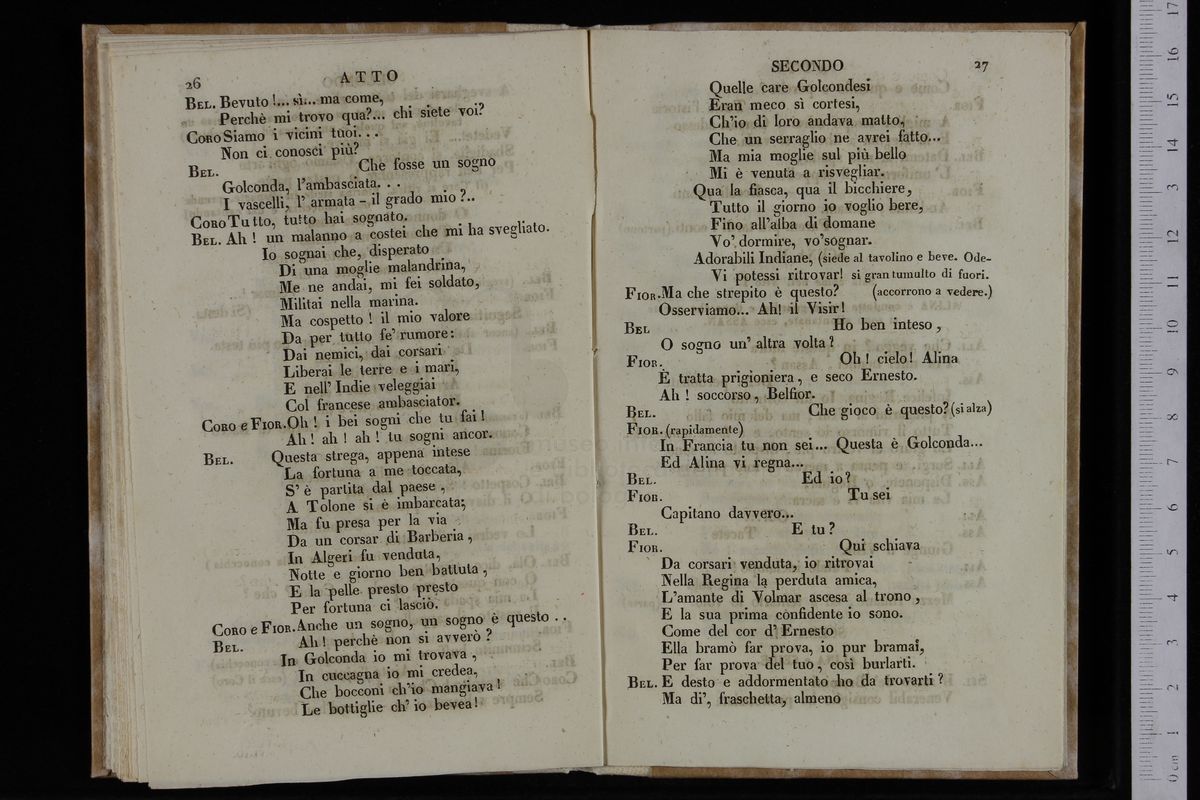 26
ATTO
BEL. Bevuto!... sì... ma come,
Perchè mi trovo qua?... chi siete voi?
CORO Siamo i vicini tuoi...
Non ci conosci più?
BEL. Che fosse un sogno
Golconda, l'ambasciata...
I vascelli, l' armata - il grado mio?..
CORO Tutto, tutto hai sognato.
BEL. Ah! un malanno a costei che mi ha svegliato.
Io sognai che, disperato
Di una moglie malandrina,
Me ne andai, mi fei soldato,
Militai nella marina.
Ma cospetto! il mio valore
Da per tutto fe' rumore:
Dai nemici, dai corsari
Liberai le terre e i mari,
E nell' Indie veleggiai
Col francese ambasciator.
CORO e FIOR. Oh! i bei sogni che tu fai!
Ah! ah! ah! tu sogni ancor.
BEL. Questa strega, appena intese
La fortuna a me toccata,
S' è partita dal paese,
A Tolone si è imbarcata;
Ma fu presa per la via
Da un corsar di Barberia,
In Algeri fu venduta,
Notte e giorno ben battuta,
E la pelle presto presto
Per fortuna ci lasciò.
CORO e FIOR. Anche un sogno, un sogno è questo..
BEL. Ah! perchè non si avverò?
In Golconda io mi trovava,
In cuccagna io mi credea,
Che bocconi ch'io mangiava!
Le bottiglie ch' io bevea!
SECONDO
27
Quelle care Golcondesi
Eran meco sì cortesi,
Ch'io di loro andava matto,
Che un serraglio ne avrei fatto...
Ma mia moglie sul più bello
Mi è venuta a risvegliar.
Qua la fiasca, qua il bicchiere,
Tutto il giorno io voglio bere,
Fino all'alba di domane
Vo' dormire, vo'sognar.
Adorabili Indiane, (siede al tavolino e beve. Ode-
Vi potessi ritrovar! si gran tumulto di fuori.
FIOR. Ma che strepito è questo? (accorrono a vedere.)
Osserviamo... Ah! il Visir!
BEL Ho ben inteso,
O sogno un' altra volta?
FIOR. Oh! cielo! Alina
È tratta prigioniera, e seco Ernesto.
Ah! soccorso, Belfior.
BEL. Che gioco è questo? (si alza)
FIOR. (rapidamente)
In Francia tu non sei... Questa è Golconda...
Ed Alina vi regna...
BEL. Ed io?
FIOR. Tu sei
Capitano davvero...
BEL. E tu?
FIOR. Qui schiava
Da corsari venduta, io ritrovai
Nella Regina la perduta amica,
L'amante di Volmar ascesa al trono,
E la sua prima confidente io sono.
Come del cor d' Ernesto
Ella bramò far prova, io pur bramai,
Per far prova del tuo, così burlarti.
BEL. E desto e addormentato ho da trovarti?
Ma di', fraschetta, almeno
0 cm 1 2 3 4 5 6 7 8 9 10 11 12 13 14 15 16 17